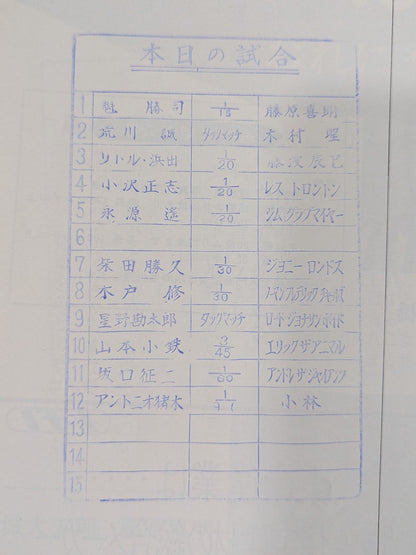 本日の試合
1 魁 勝司 1/15 藤原喜明
2 荒川 誠 タッグマッチ 木村 聖
3 リトル・浜田 1/20 藤波辰巳
4 小沢正志 1/20 レス トロントン
5 永源遙 1/20 ジム グラブマイヤー
6
7 柴田勝久 1/30 ジョニー ロンドス
8 木戸 修 1/30
9 星野勘太郎 タッグマッチ ロード ジョナサン ボイド
10 山本小鉄 3/45 エリック ザ アニマル
11 坂口征二 1/60 アンドレ ザ ジャイアント
12 アントニオ猪木 小林
13
14
15